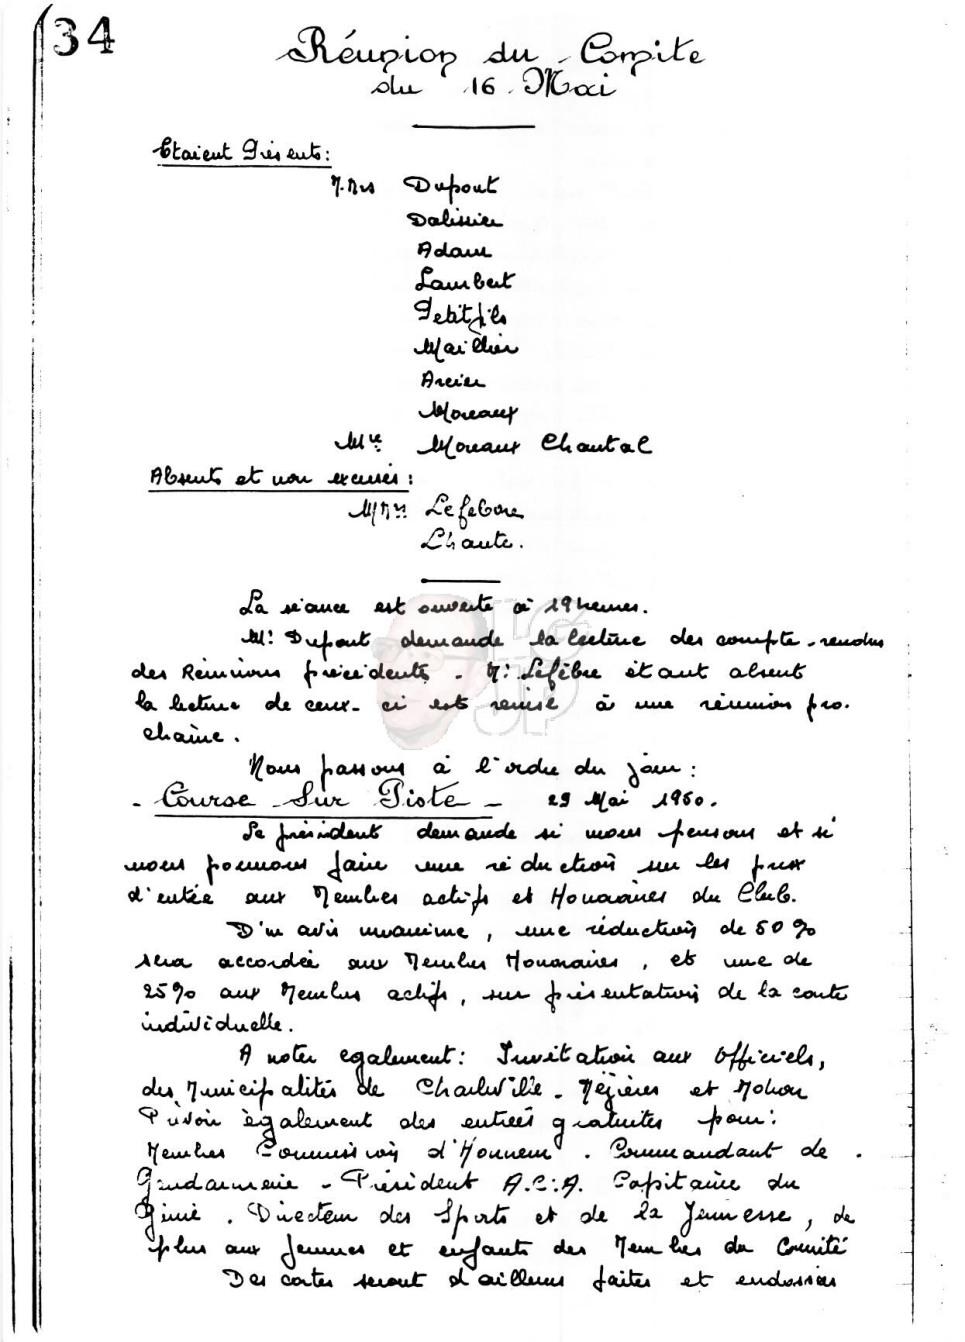 34
Réunion du Comite
du 16 Mai
Etaient Présents:
M.Mrs Dupont
Dalissier
Adam
Lambert
Petitfils
Maillier
Arcier
Moreaux
Mlle Moreaux Chantal
Absents et non excusés:
MMrs Lefebvre
Lhaute.
La séance est ouverte à 19 heures.
Mr Dupont demande la lecture des compte-rendus
des Réunions précédents - Mr Lefèbre étant absent
la lecture de ceux-ci est remise à une réunion pro-
chaine.
Nous passons à l'ordre du jour:
- Course Sur Piste - 29 Mai 1960.
Le président demande si nous pensons et si
nous pouvons faire une réduction sur les prix
d'entée aux Membres actifs et Honoraires du Club.
D'un avis unanime, une réduction de 50%
sera accordée aux Membres Honoraires, et une de
25% aux Membres actifs, sur présentation de la carte
individuelle.
A noter également: Invitation aux Officiels,
des Municipalités de Charleville - Mézières et Mohon
Prévoir également des entrées gratuites pour:
Membres Commission d'Honneur - Commandant de
Gendarmerie - Président A.C.A. Capitaine du
Génie - Directeur des Sports et de la Jeunesse, de
plus aux femmes et enfants des Membres du Comité
Des cartes seront d'ailleurs faites et endossées